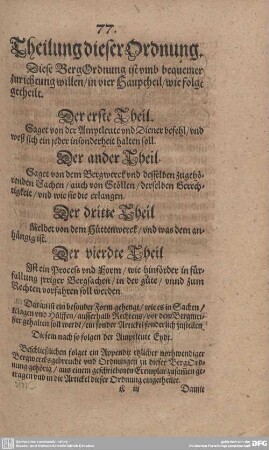 77.
Theilung dieser Ordnung.
Diese BergOrdnung ist vmb bequemer
zurichtung willen / in vier Haupttheil / wie folge
getheilt.
Der erste Theil.
Saget von der Amptleute vnd Diener befehl / vnd
weß sich ein jeder insonderheit halten soll.
Der ander Theil
Saget von dem Bergwerck vnd desselben zugehö-
renden Sachen / auch von Stöllen / derselben Gerech-
tigkeit / vnd wie sie die erlangen.
Der dritte Theil
Meldet von dem Hüttenwerck / vnd was dem an-
hängig ist.
Der vierdte Theil
Ist ein Process vnd Form / wie hinförder in für-
fallung jrriger Bergsachen / in der güte / vnnd zum
Rechten vorfahren soll werden
Daran ist ein besonder Form gehengt / wie es in Sachen /
klagen vnd Hülffen / ausserhalb Rechtens / vor dem Bergmei-
ster gehalten soll werd / ein sonder Artickel sonderlich zustellen /
Diesem nach so folgen der Amptleute Eydt.
Beschließlichen folget ein Appendix etzlicher nothwendiger
Bergwercks gebreuche vnd Ordnungen zu dieser BergOrd-
nung gehörig / aus einem geschriebenen Exemplar zusamen ge-
tragen vnd in die Artickel dieser Ordnung eingetheilet.
K iij Damit